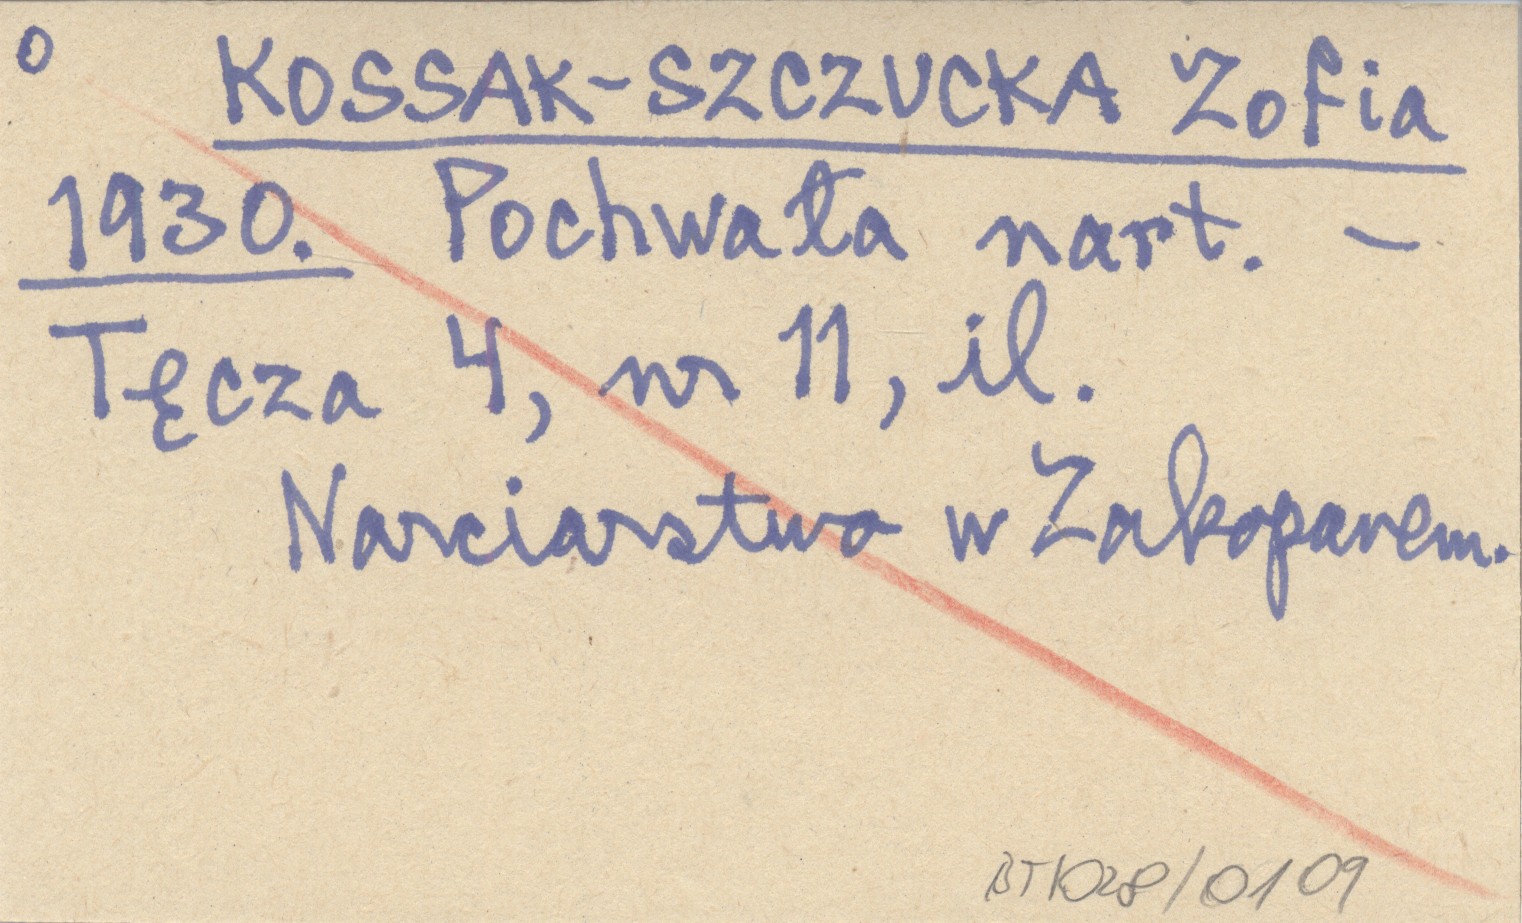 o KOSSAK-SZCZUCKA Zofia
1930. Pochwała nart. -
Tęcza 4, nr 11, il.
Narciarstwo w Zakopanem.
BT1028/0109